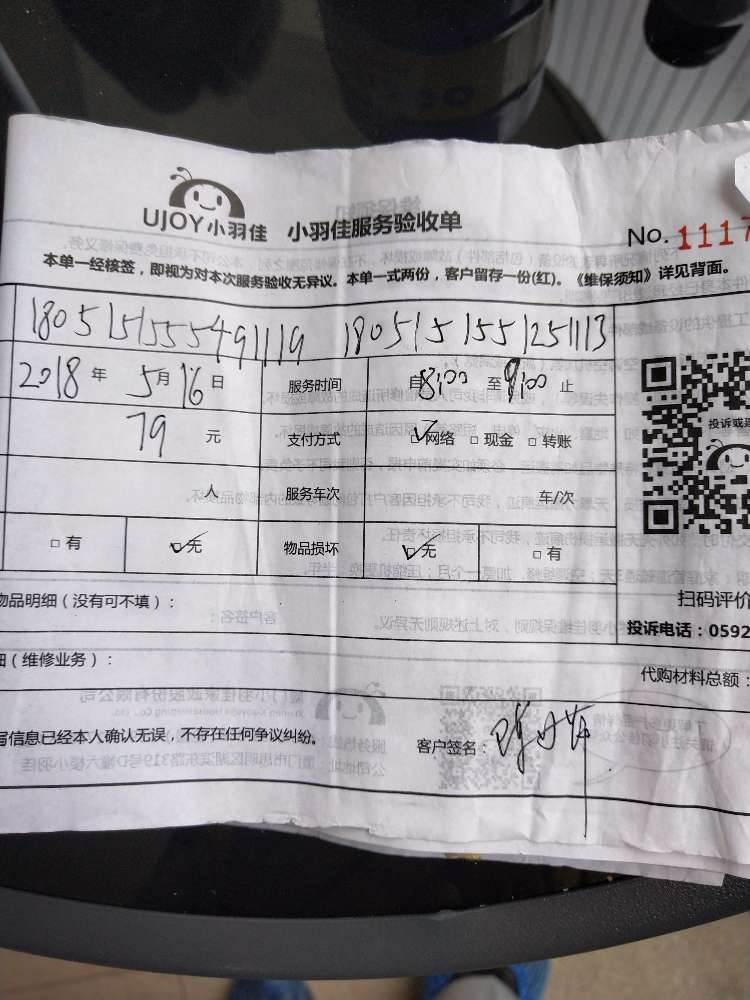 UJOY小羽佳 小羽佳服务验收单
No. 1117
本单一经核签，即视为对本次服务验收无异议。本单一式两份，客户留存一份(红)。《维保须知》详见背面。
180515155549119 180515155125113
2018年 5月16日 服务时间 自8:00至9:00止
79元 支付方式 ☑网络 □现金 □转账
人 服务车次 车/次
□有 ☑无 物品损坏 ☑无 □有
投诉或建
扫码评价
投诉电话：0592
物品明细（没有可不填）：
细（维修业务）：
代购材料总额：
写信息已经本人确认无误，不存在任何争议纠纷。
客户签名：